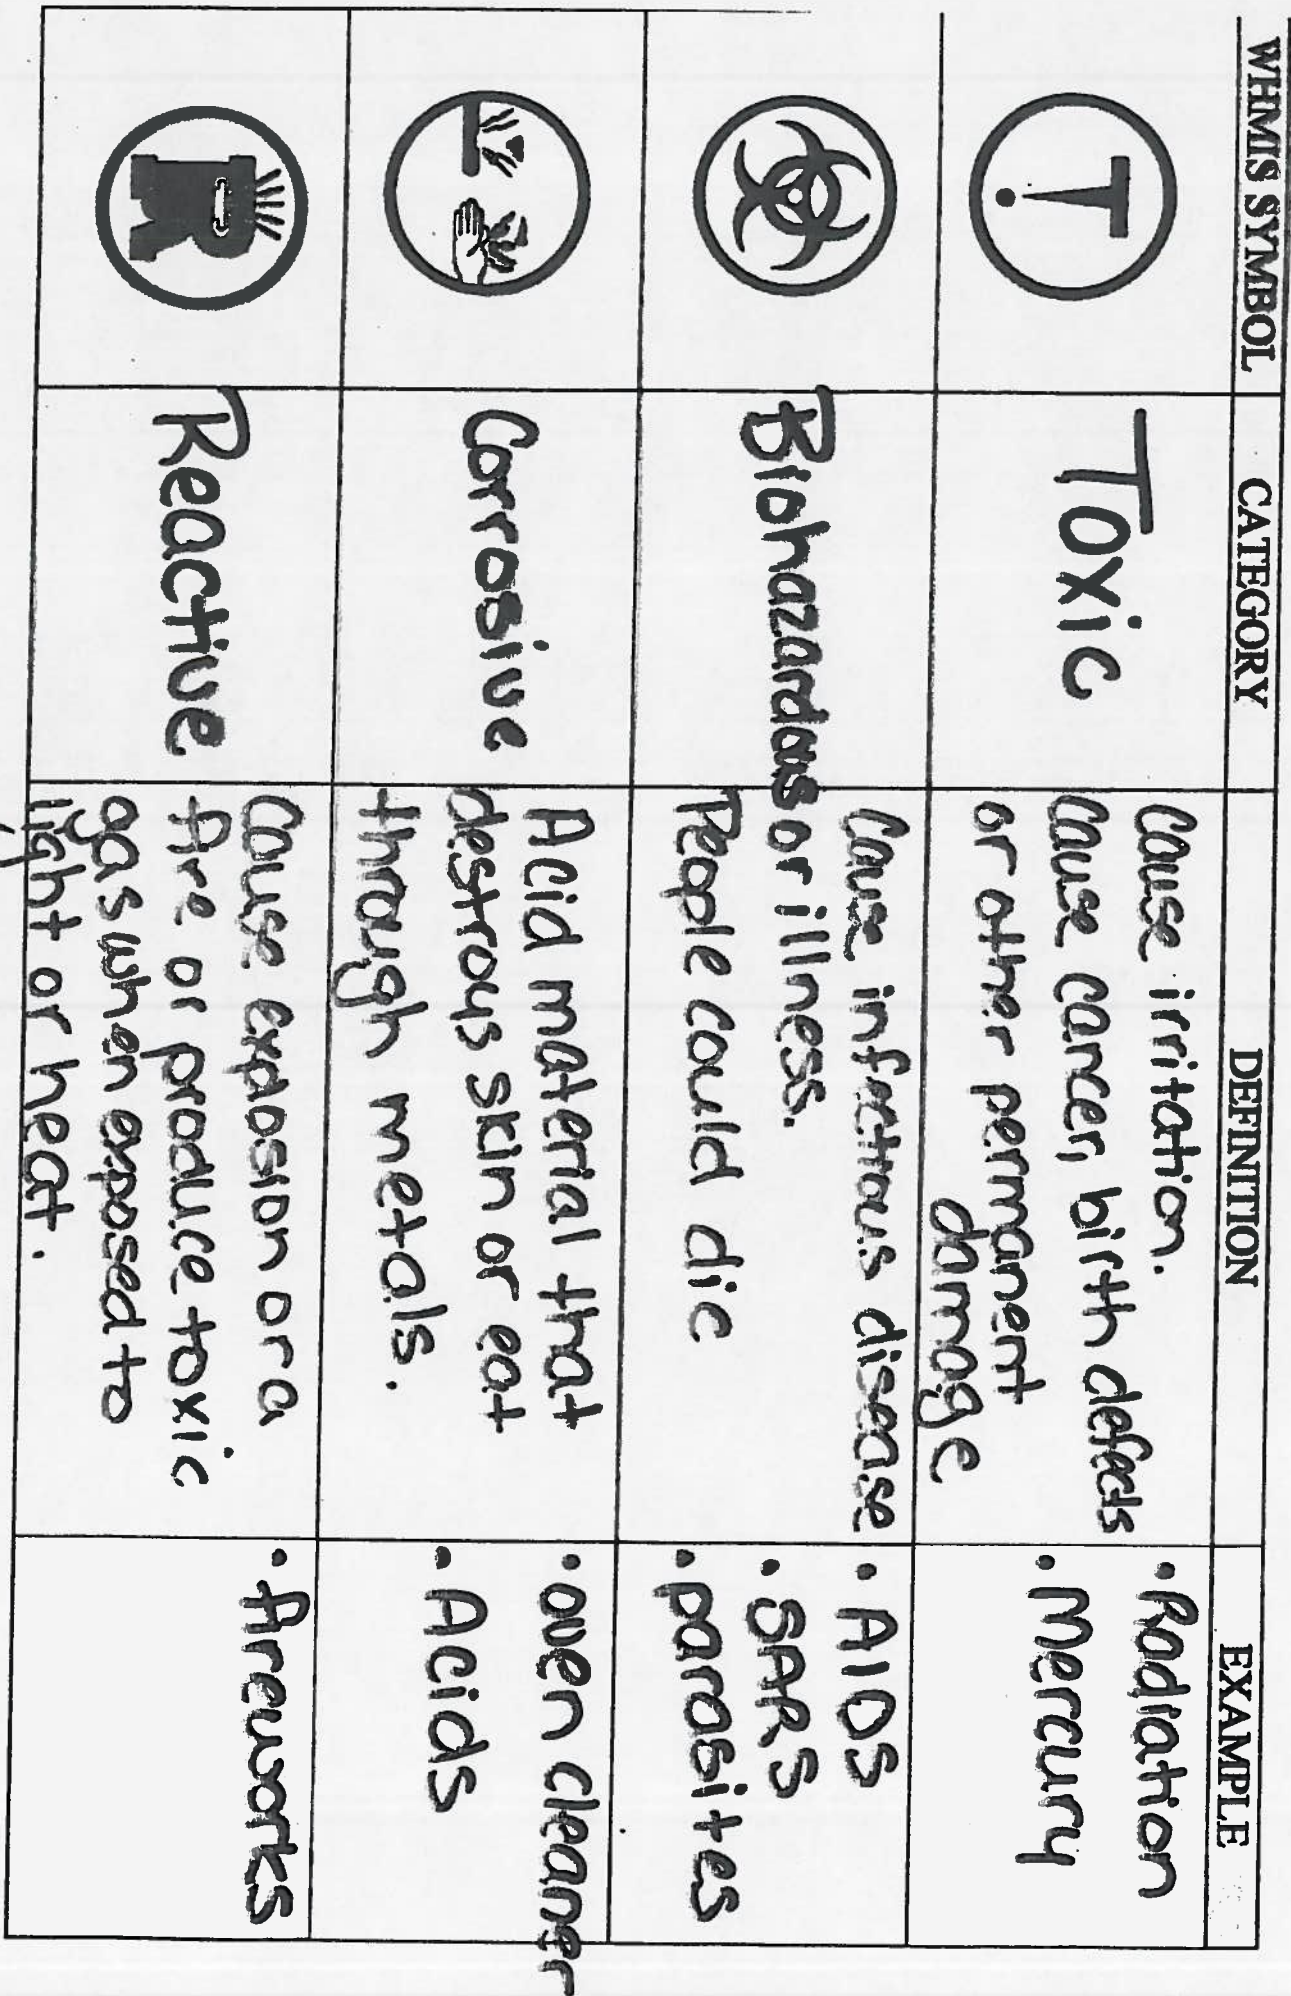 WHMIS SYMBOL CATEGORY DEFINITION EXAMPLE
T
Toxic
Cause irritation.
Cause cancer, birth defects
or other permanent
damage
• Radiation
• Mercury
Biohazardous
Cause infectious disease
or illness.
People could die
• AIDS
• SARS
• parasites
Corrosive
Acid material that
destroys skin or eat
through metals.
• oven cleaner
• Acids
R
Reactive
Cause explosion or a
fire or produce toxic
gas when exposed to
light or heat.
• fireworks